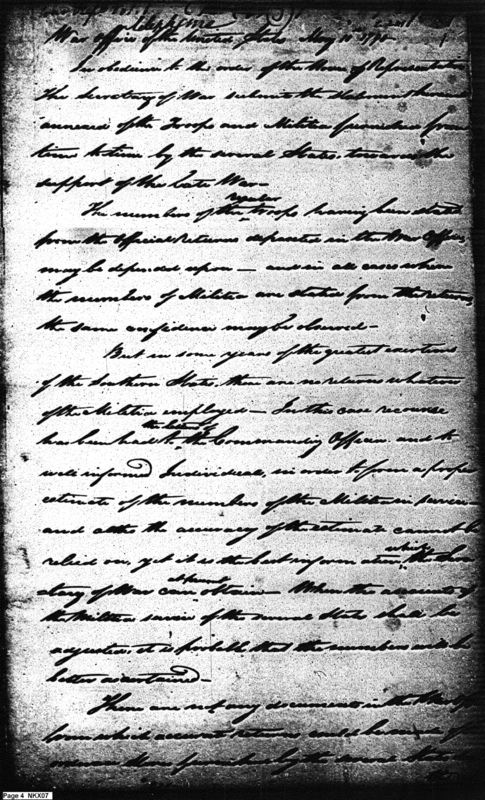 War office of the United States May 10. 1790
In obedience to the order of the House of Representatives
The Secretary of War submits the statement hereunto
annexed of the Troops and Militia furnished from
time to time by the several States, towards the
support of the late War—
The numbers of the regular troops having been stated
from the Official returns deposited in the War Office,
may be depended upon — and in all cases where
the numbers of Militia are stated from the returns,
the same confidence may be observed—
But in some years of the greatest exertions
of the Southern States, there are no returns whatever
of the Militia employed — In this case recourse
has been had to the letters of the Commanding Officer and to
well informed Individuals, in order to form a proper
estimate of the numbers of the Militia in service—
and altho the accuracy of the estimate cannot be
relied on, yet it is the best information, which the Secre
tary of War can at present obtain — When the accounts of
the Militia service of the several States shall be
adjusted it is probable that the numbers will be
better ascertained—
There are not any documents in the War office
from which accurate returns could be made of
ordnance stores furnished by the several States
Page 4 NKX07